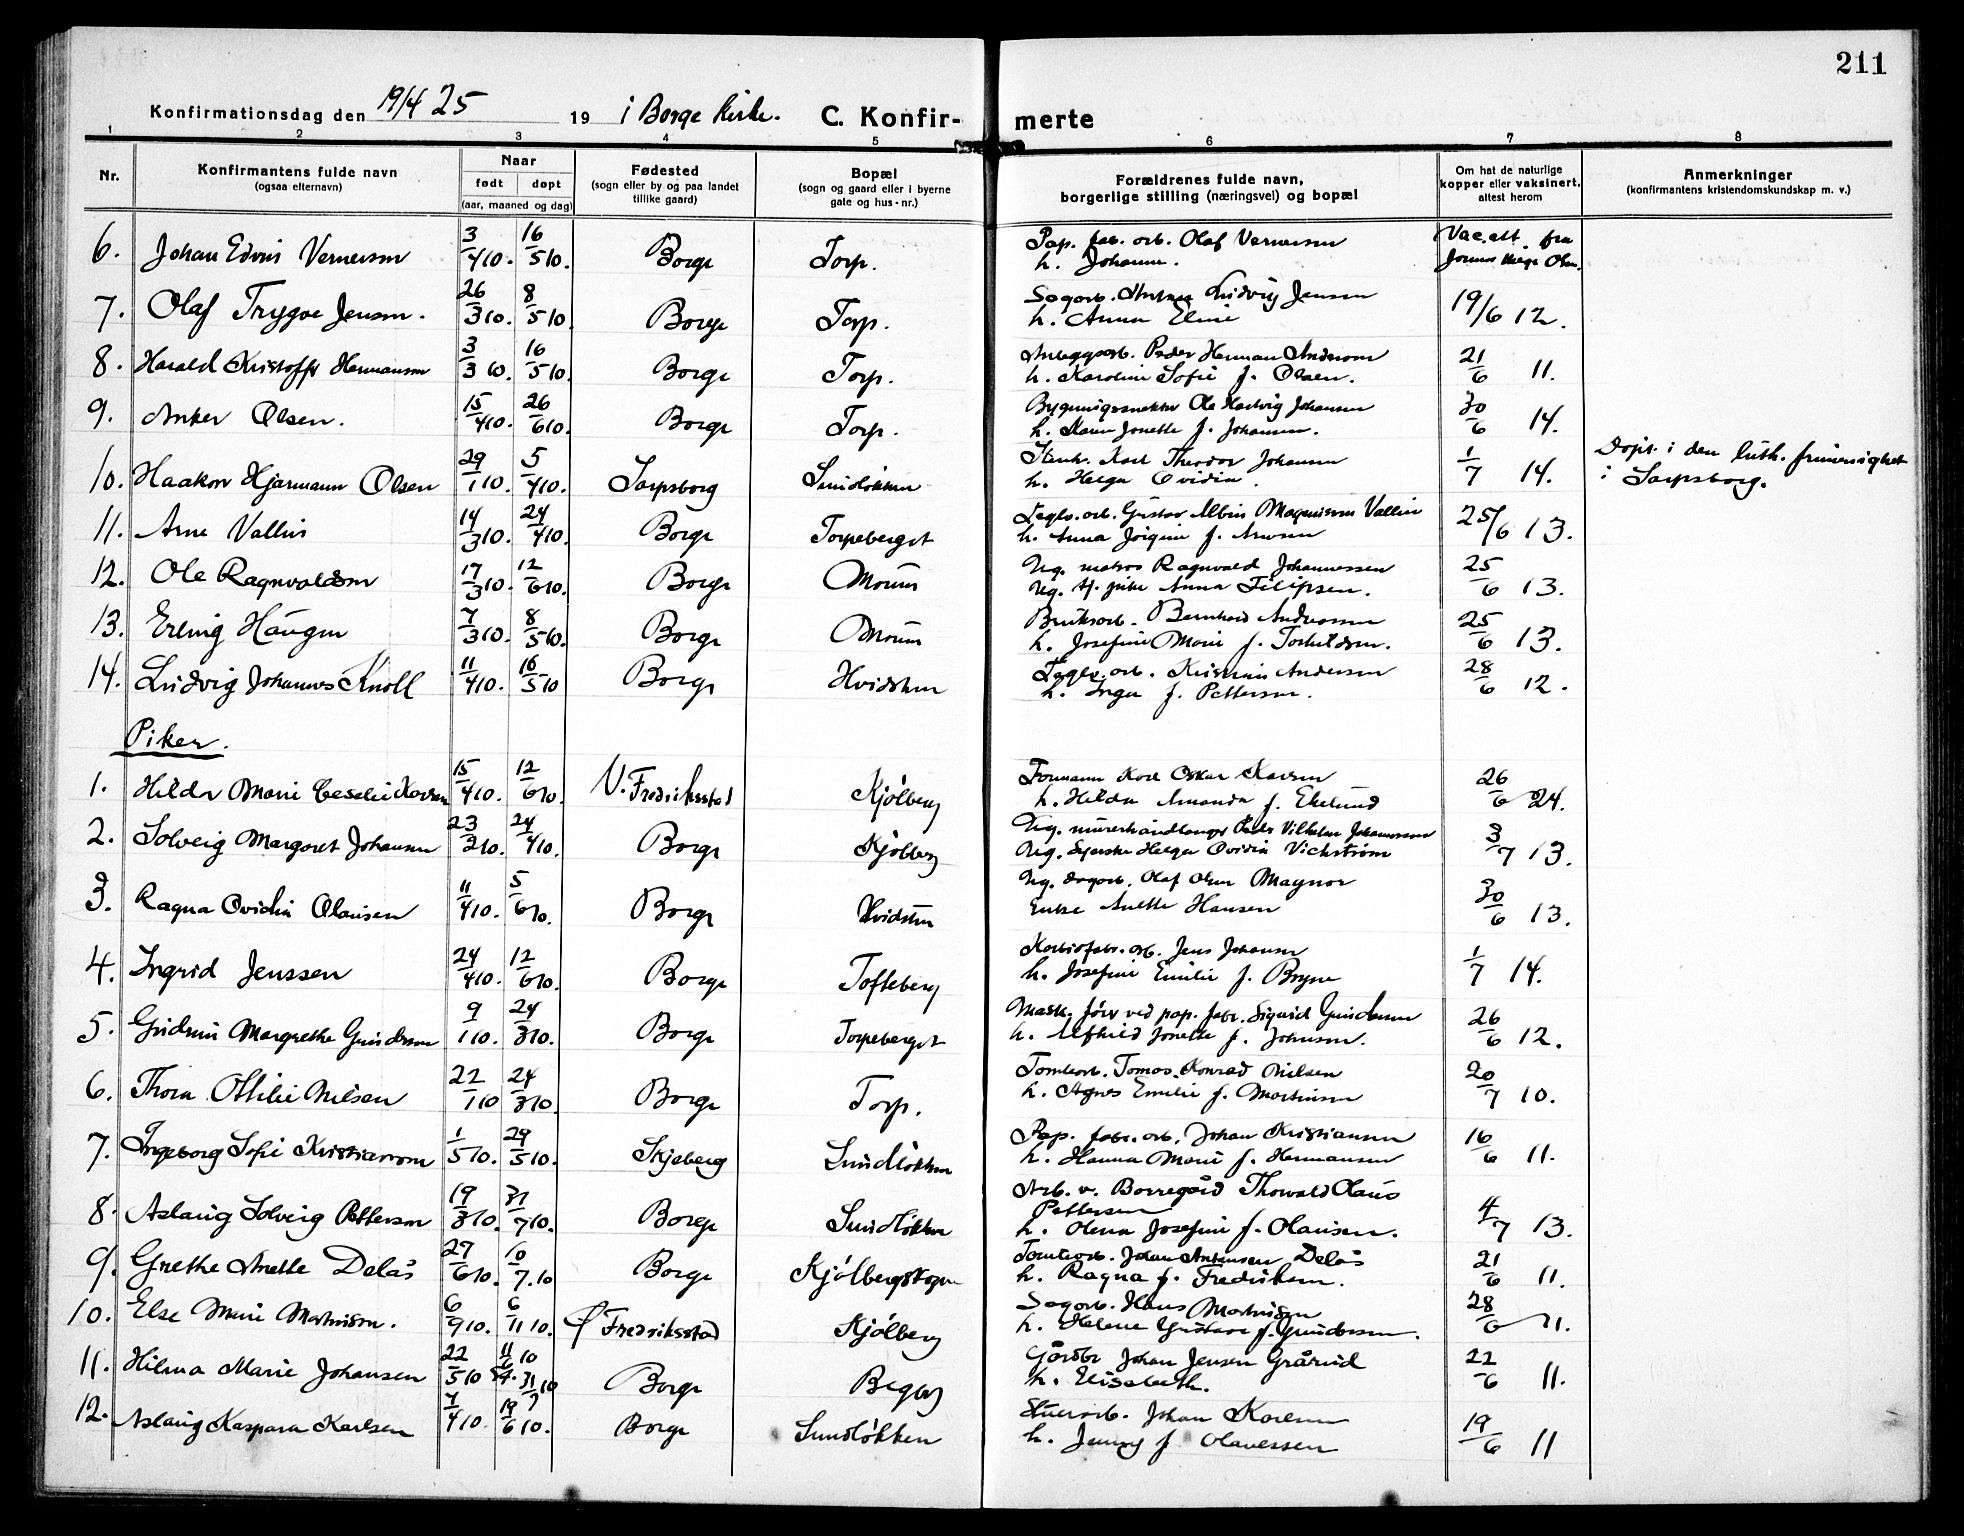 211
Konfirmationsdag den 19/4 25 19 i Borge kirke. C. Konfir- merte
1 2 3 4 5 6 7 8
Nr. Konfirmantens fulde navn (ogsaa efternavn) Naar født døpt (aar, maaned og dag) Fødested (sogn eller by og paa landet tillike gaard) Bopæl (sogn og gaard eller i byerne gate og hus-nr.) Forældrenes fulde navn, borgerlige stilling (næringsvei) og bopæl Om hat de naturlige kopper eller vaksinert, attest herom Anmerkninger (konfirmantens kristendomskundskap m. v.)
6. Johan Edvin Vernersen 3/4 10. 16/5 10. Borge Torp. Pap. fab. arb. Olaf Vernersen Vac. att. fra
h. Johanne.
7. Olaf Trygve Jensen. 26/3 10. 8/5 10. Borge Torp. Sagarb. Ludvig Jensen 19/6 12.
h. Anna Eline
8. Harald Kristoffer Hermansen 3/3 10. 16/5 10. Borge Torp. Peder Herman 21/6 11.
h. Karoline Sofie f. Olsen.
9. Anker Olsen. 15/4 10. 26/6 10. Borge Torp. Ole Hartvig Johansen 30/6 14.
h. Karen Jonette f. Johansen.
10. Haakon Hjarmann Olsen 29/1 10. 5/4 10. Sarpsborg Sundløkken Stenh. Karl Theodor Johansen 1/7 14. Døpt i den luth. frimenighet
h. Helga Ovidia. i Sarpsborg.
11. Arne Vallin 14/3 10. 24/4 10. Borge Torpeberget Teglv. arb. Gustav Albin Magnusson Vallin 25/6 13.
h. Anna Jørgine f.
12. Ole Ragnvaldsen 17/3 10. 12/6 10. Borge Moum Ug. matros Ragnvald Johannessen 25/6 13.
Ug. tj. pike Anna Filipsen.
13. Erling Haugen 7/3 10. 8/5 10. Borge Moum Bruksarb. Bernhard Andreassen 25/6 13.
h. Josefine Marie f. Torkildsen.
14. Ludvig Johannes Knoll 11/4 10. 16/5 10 Borge Hvidsten Teglv. arb. Kristian Andersen 28/6 12.
h. Inga f. Pettersen.
Piker.
1. Hilda Marie Cecelie Karlsen 15/4 10. 12/6 10. V. Fredriksstad Kjølberg Formann Karl Oskar Karlsen 26/6 24.
h. Hilda Amanda f. Ekelund
2. Solveig Margaret Johansen 23/3 10. 24/4 10. Borge Kjølberg Ug. murerhåndlanger Vilhelm Johannessen 3/7 13.
Ug. Syerske Helga Ovidia Vickstrøm
3. Ragna Ovidia Olausen 11/4 10. 5/6 10. Borge Hvidsten Ug. dagarb. Olaf Olsen Magnor 30/6 13.
Enke Anette Hansen
4. Ingrid Jenssen 24/4 10. 12/6 10. Borge Tofteberg Karbidfabr. arb. Jens Johansen 1/7 14.
h. Josefine Emilie f. Bryne
5. Gudrun Margrethe Gundersen 9/1 10. 24/3 10. Borge Torpeberget Mask. fører ved pap. fabr. Sigurd Gundersen 26/6 12.
h. Alfhild Jonette f. Johnsen.
6. Thora Ottilie Nilsen 22/1 10 24/3 10. Borge Torp. Tomtearb. Tomas Konrad Nilsen 20/7 10.
h. Agnes Emilie f. Martinsen
7. Ingeborg Sofie Kristiansen 1/5 10. 29/5 10. Skjeberg Sundløkken Pap. fabr. arb. Johan Kristiansen 16/6 11.
h. Hanna Marie f. Hermansen
8. Aslaug Solveig Pettersen 19/3 10. 31/7 10. Borge Sundløkken Arb. v. Borregård Thorvald Olaus 4/7 13.
Pettersen
h. Olena Josefine f. Olausen.
9. Grethe Anette Delås 27/6 10. 10/7. 10 Borge Kjølbergskogen Tomtearb. Johan Antonsen Delås 21/6 11.
h. Ragna f. Fredriksen.
10. Else Marie Martinsen. 6/9 10. 6/11 10. Ø Fredriksstad Kjølberg Sagarb. Hans Martinsen 28/6 11.
h. Helene Gustava f. Gundersen.
11. Hilma Marie Johansen 22/5 10 11/6 10 st. 31/7 10 Borge Begby Gårdbr Johan Jensen Grårud 22/6 11.
h. Elisabeth.
12. Aslaug Kaspara Karlsen 7/4 10. 19/6 10. Borge Sundløkken Stuerarb. Johan Karlsen 19/6 11
h. Jenny f. Olavessen